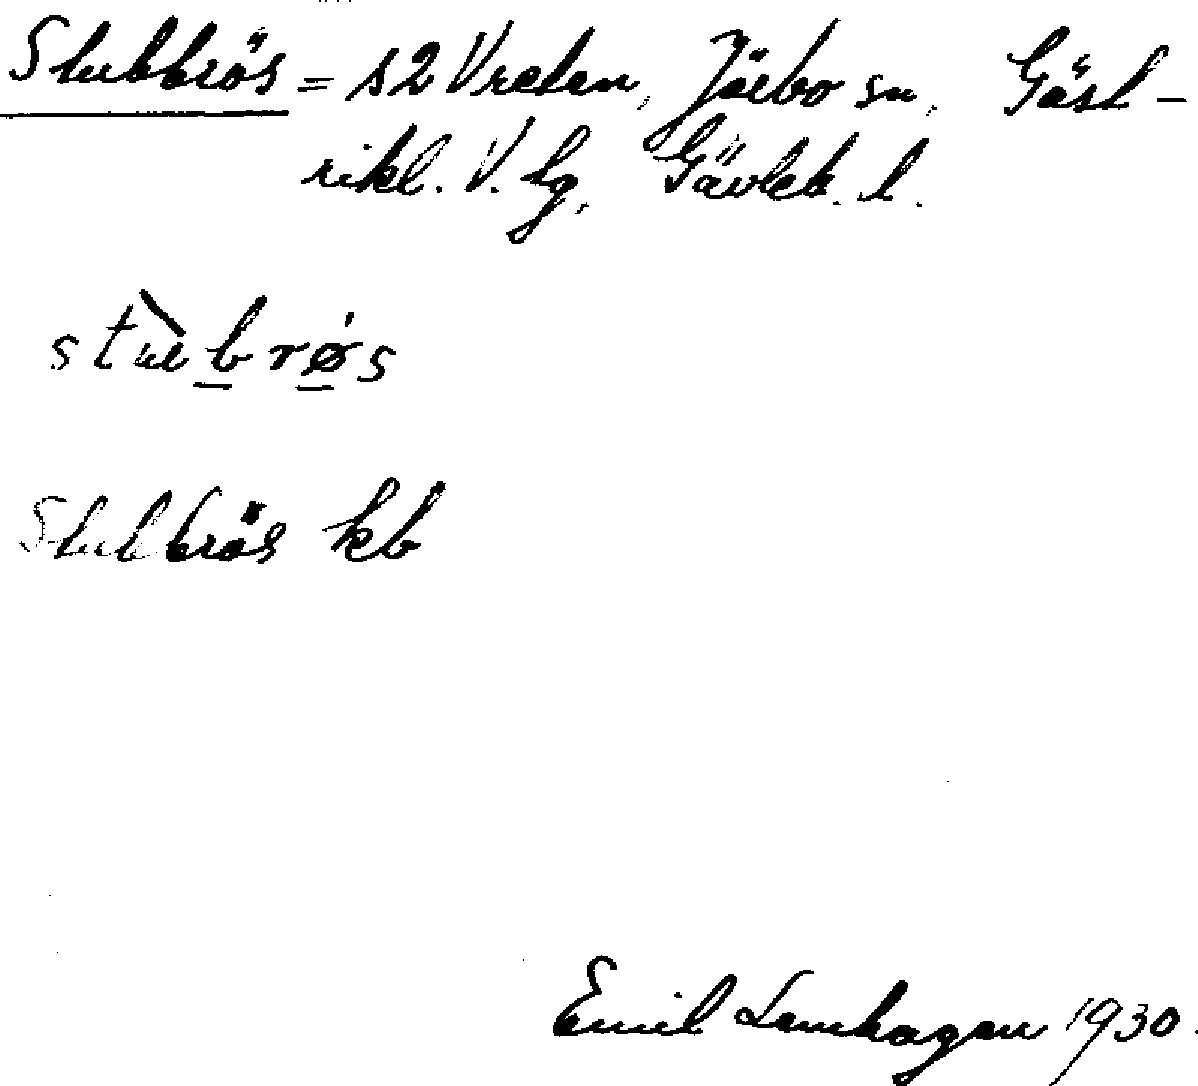 Stubbrös = s2 Vreten, Järbo sn, Gäst-
rikl. V. tg, Gävleb. l.
stùbrø̀s
Stubbrös kb
Emil 1930.